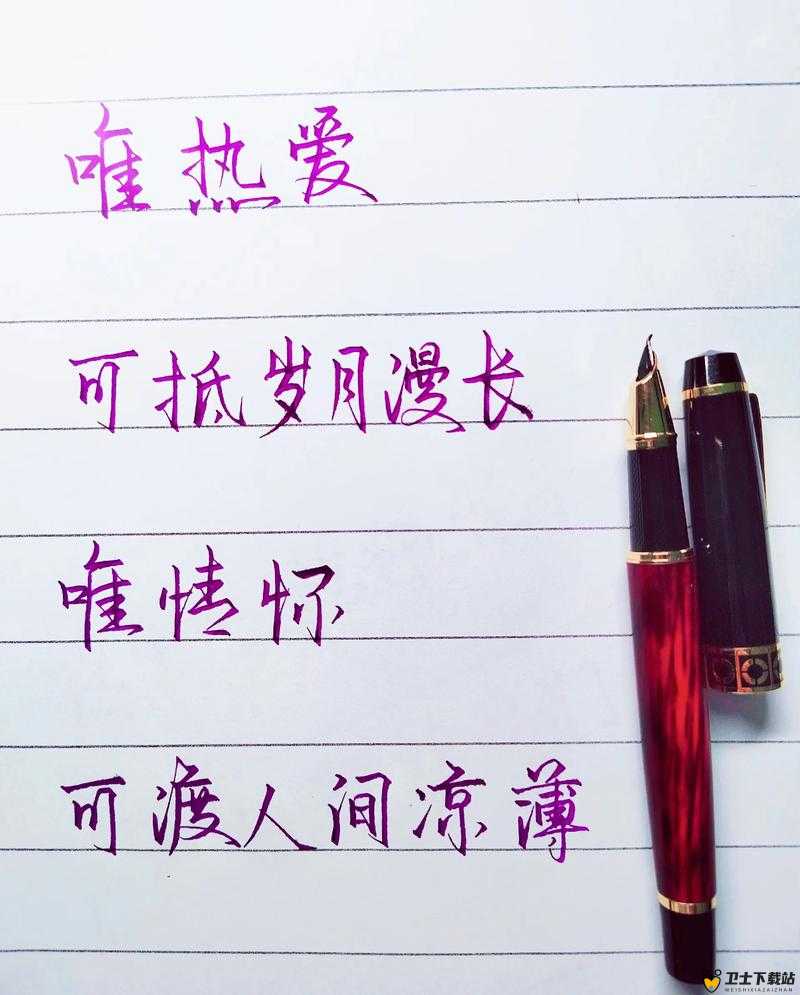 唯热爱
可抵岁月漫长
唯情怀
可渡人间凉薄
卫士下载站
WEISHIXIAZAIZHAN